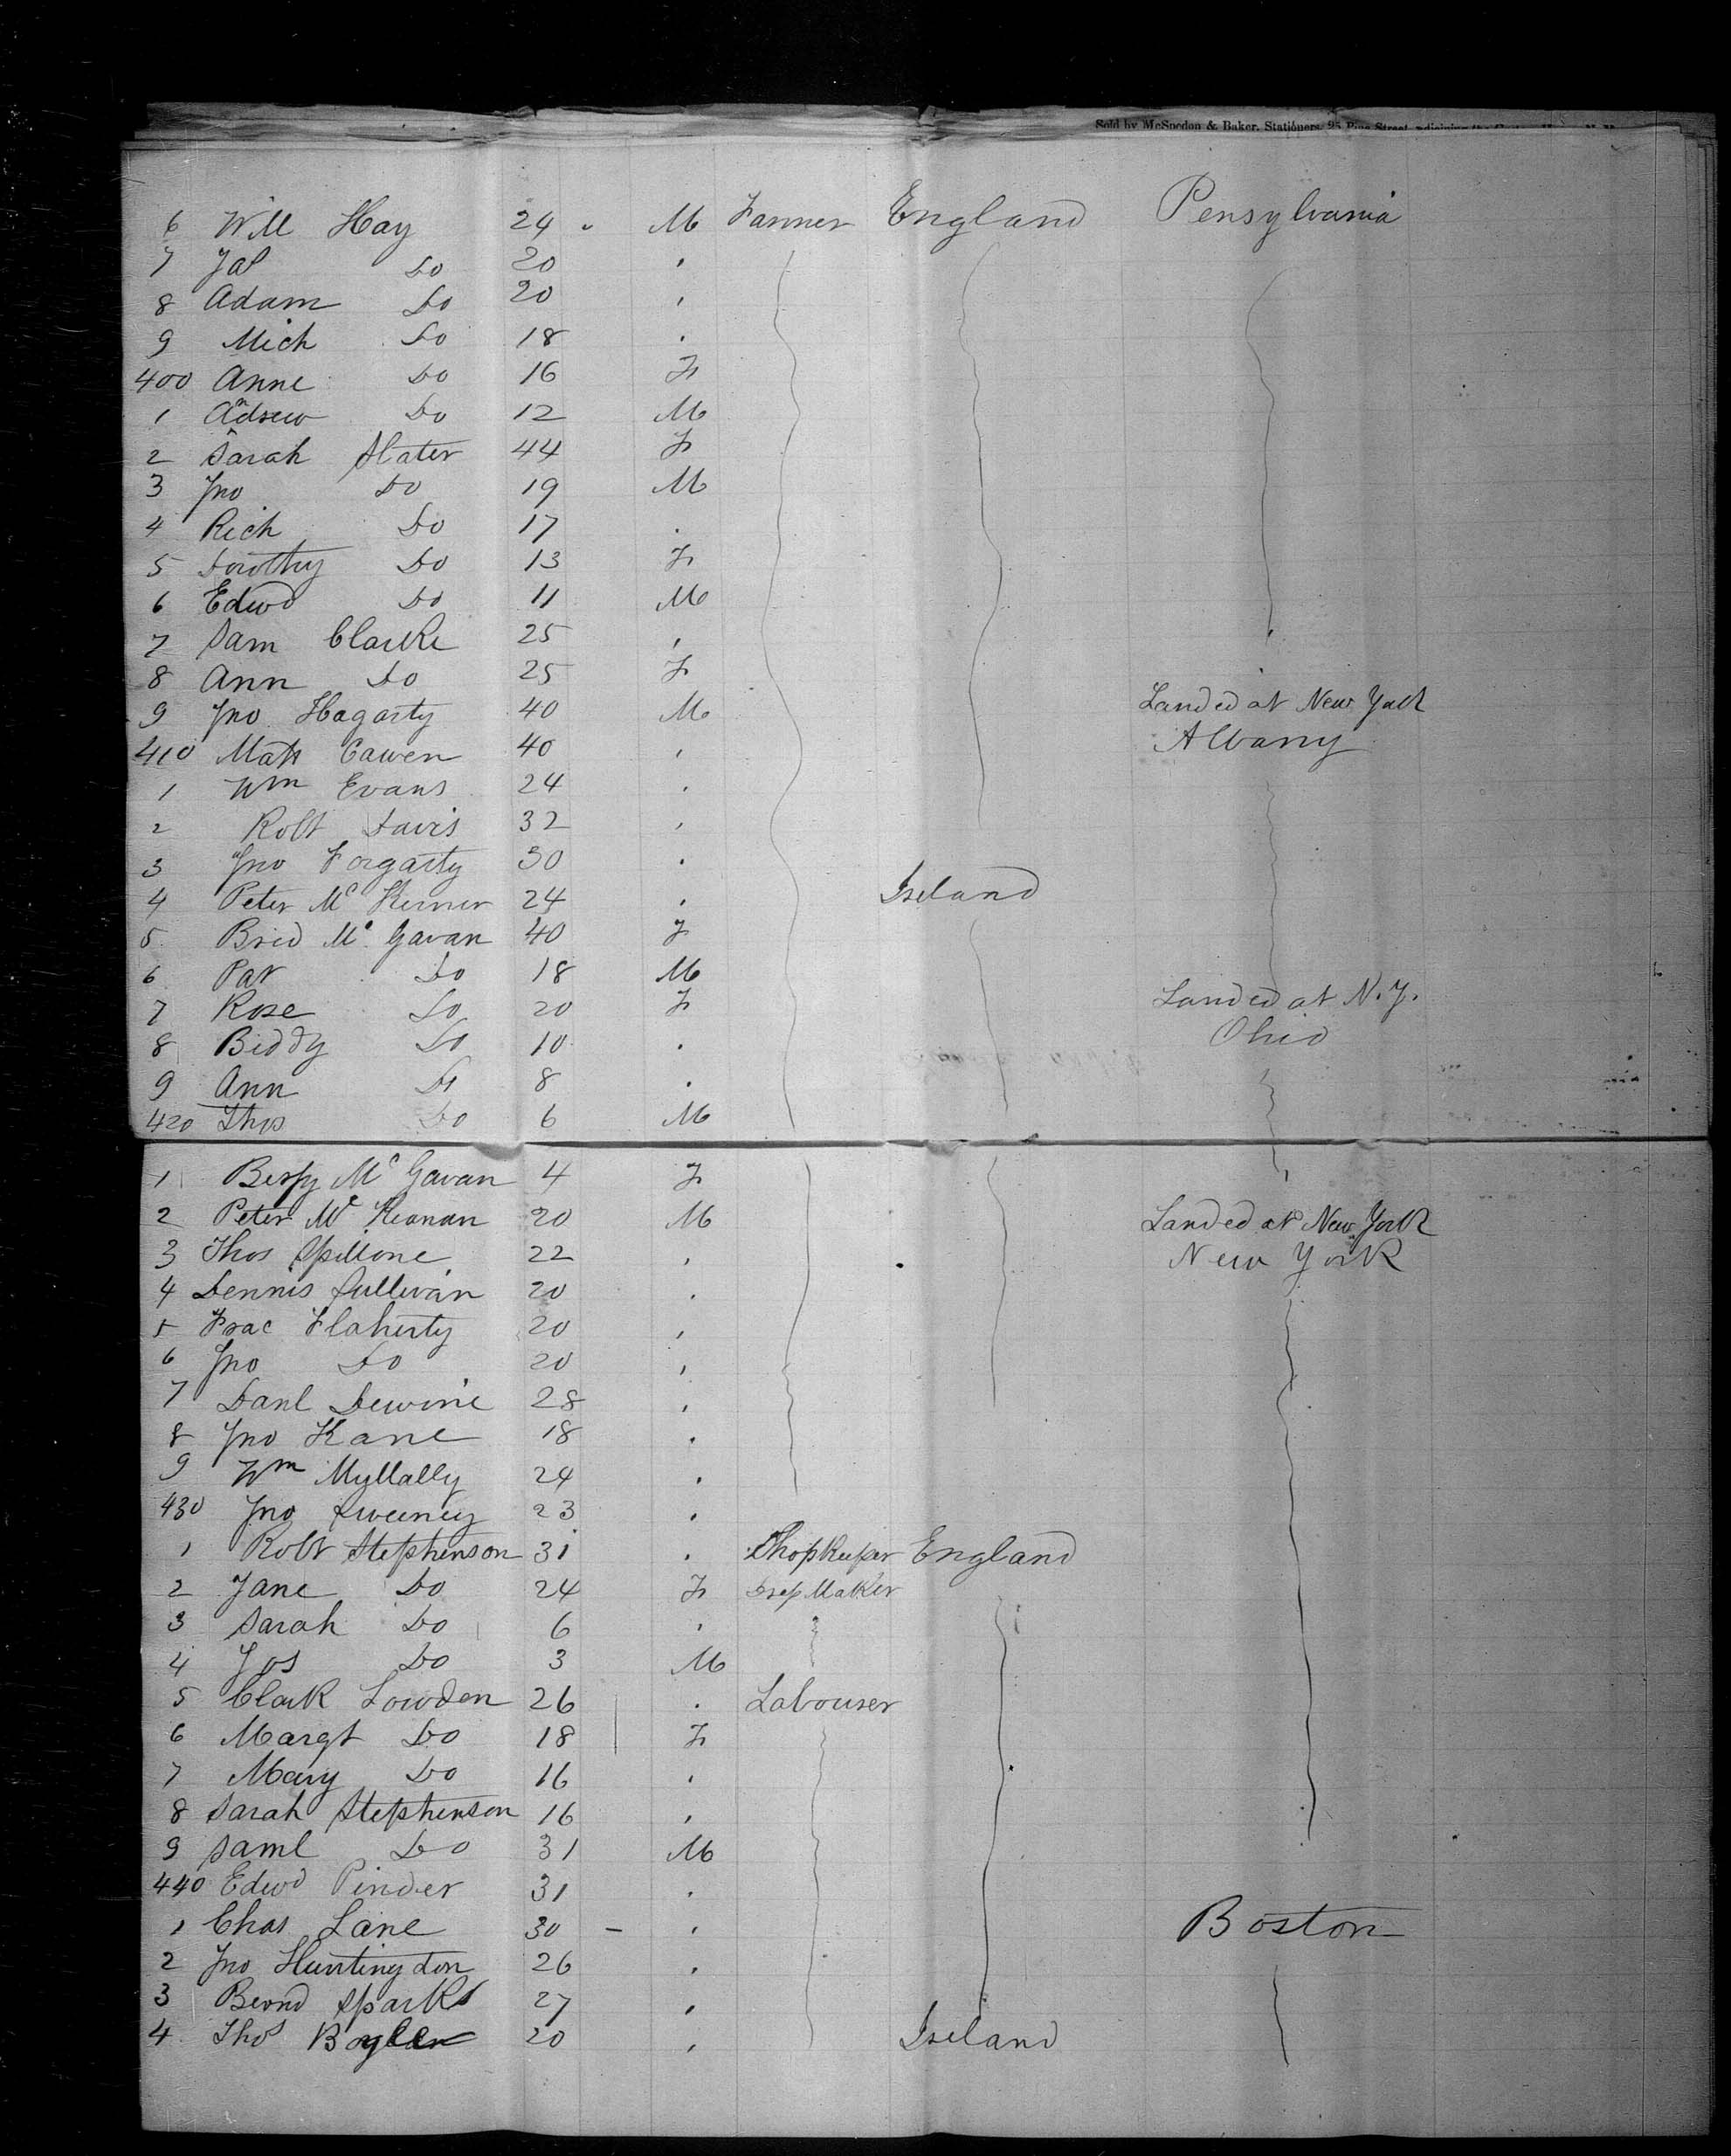 Sold by McSpedon & Baker, Stationers, 25 Pine Street, adjoining the
6 Will Hay 24 M Farmer England Pensylvania
7 Jas Do 20
8 Adam Do 20
9 Mich Do 18
400 Anne Do 16 F
1 Andrew Do 12 M
2 Sarah Slater 44 F
3 Jno Do 19 M
4 Rich Do 17
5 Dorothy Do 13 F
6 Edwd Do 11 M
7 Sam Clarke 25
8 Ann Do 25 F
9 Jno Hagarty 40 M Landed at New York
410 Matt Cawen 40 Albany
1 Wm Evans 24
2 Robt Davis 32
3 Jno Fogarty 30
4 Peter Mc 24 Ireland
5 Brid Mc Gavan 40 F
6 Pat Do 18 M
7 Rose Do 20 F Landed at N.Y.
8 Biddy Do 10 Ohio
9 Ann Do 8
420 Thos Do 6 M
1 Bessy Mc Gavan 4 F
2 Peter Mc Keonan 20 M Landed at New York
3 Thos Spillone 22 New York
4 Dennis Sullivan 20
5 Isac Flaherty 20
6 Jno Do 20
7 Danl Dewine 28
8 Jno Kane 18
9 Wm Myllally 24
430 Jno Sweeney 23
1 Robt Stephenson 31 Shopkeeper England
2 Jane Do 24 F Dress Maker
3 Sarah Do 6
4 Jos Do 3 M
5 Clark Lowden 26 Labourer
6 Margt Do 18 F
7 Mary Do 16
8 Sarah Stephenson 16
9 Saml Do 31 M
440 Edwd Pinder 31
1 Chas Lane 30 – Boston
2 Jno Huntingdon 26
3 Sparks 27
4 Thos Boylan 20 Ireland